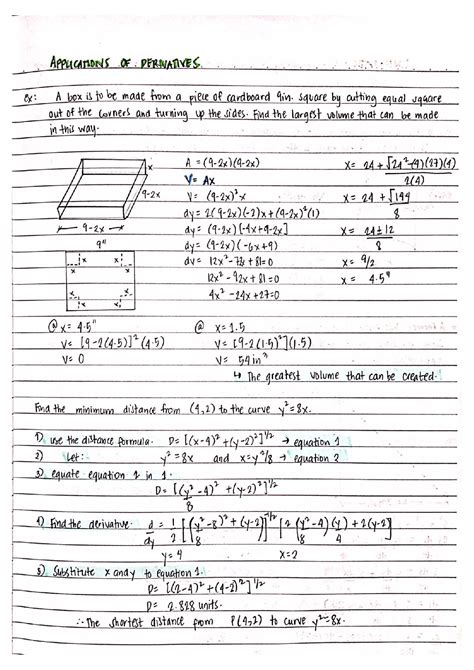 APPLICATIONS OF DERIVATIVES
ex: A box is to be made from a piece of cardboard 9in. square by cutting equal square
out of the corners and turning up the sides. Find the largest volume that can be made
in this way.
x
9-2x
9-2x
9"
x x
x x
x x
x x
A = (9-2x)(9-2x)
V= Ax
V= (9-2x)²x
dy= 2(9-2x)(-2)x+(9-2x)²(1)
dy= (9-2x)[-4x+9-2x]
dy= (9-2x)(-6x+9)
dv= 12x²-72+81=0
12x²-92x+81=0
4x²-24x+27=0
x= 24+√24²-(4)(27)(4)
2(4)
x= 24+√144
8
x= 24±12
8
x= 9/2
x= 4.5"
@ x= 4.5"
V= [9-2(4.5)]²(4.5)
V= 0
@ x=1.5
V= [9-2(1.5)²](1.5)
V= 54in³
↳ The greatest volume that can be created.
Find the minimum distance from (4,2) to the curve y²=8x.
1) use the distance formula. D= [(x-4)²+(y-2)²]^1/2 → equation 1
2) Let: y²=8x and x=y²/8 → equation 2
3) equate equation 2 in 1.
D= [(y²-4)²+(y-2)²]^1/2
8
4) Find the derivative: d = 1 [(y²-8)²+(y-2)]^1/2 [2(y²-4)(y)+2(y-2)]
dy 2 8 8 4
y=4 x=2
5) Substitute x and y to equation 1.
D= [(2-4)²+(4-2)²]^1/2
D= 2.828 units.
∴ The shortest distance from P(4,2) to curve y²=8x.